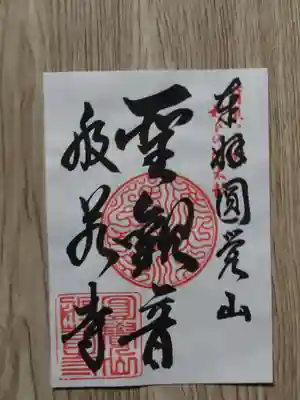 奉拝圓覚山
聖観音
般若寺